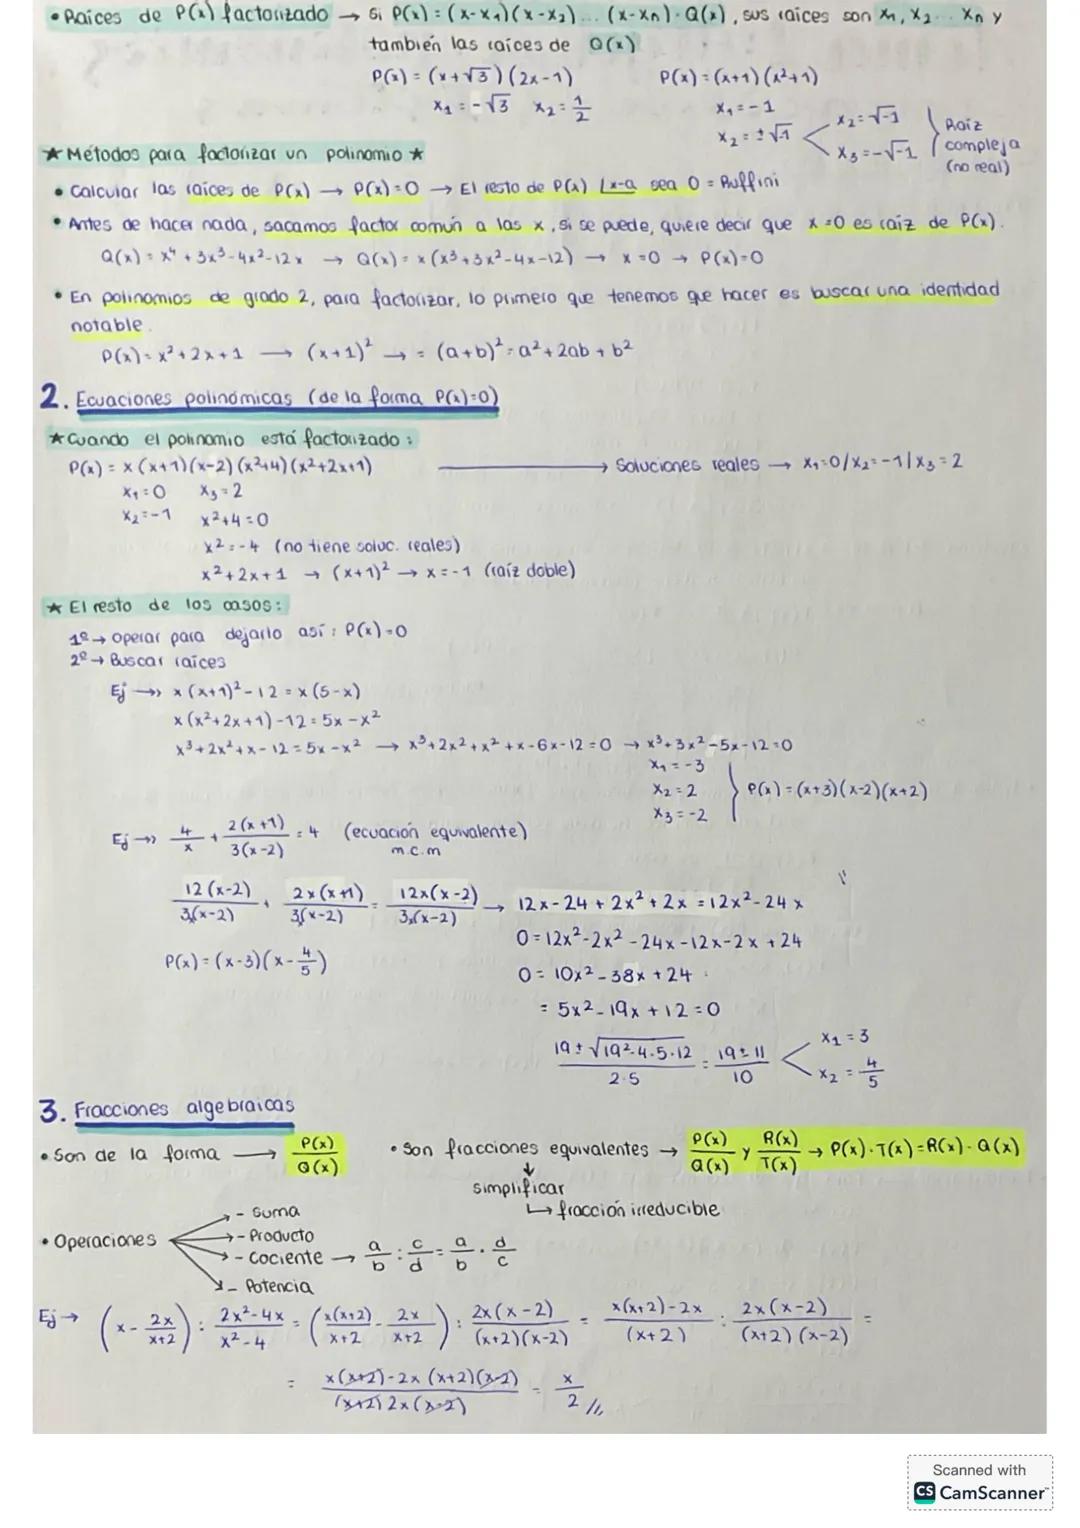 • Raíces de P(x) factorizado → Si P(x) = (x-x₁)(x-x₂)... (x-xn)·Q(x), sus raíces son x₁, x₂... xn y
también las raíces de Q(x)
P(x) = (x+√3)(2x-1)    P(x) = (x+1)(x²+1)
x₁ = -√3   x₂ = 1/2    x₁ = -1
x₂ = ±√-1   x₂ = √-1   x₃ = -√-1   Raíz compleja (no real)
★ Métodos para factorizar un polinomio ★
• Calcular las raíces de P(x) → P(x)=0 → El resto de P(x) |x-a sea 0 = Ruffini
• Antes de hacer nada, sacamos factor común a las x, si se puede, quiere decir que x=0 es raíz de P(x).
Q(x) = x⁴+3x³-4x²-12x → Q(x) = x(x³+3x²-4x-12) → x=0 → P(x)=0
• En polinomios de grado 2, para factorizar, lo primero que tenemos que hacer es buscar una identidad
notable.
P(x) = x²+2x+1 → (x+1)² → = (a+b)² = a²+2ab+b²
2. Ecuaciones polinómicas (de la forma P(x)=0)
★ Cuando el polinomio está factorizado:
P(x) = x(x+1)(x-2)(x²+4)(x²+2x+1) → Soluciones reales → x₁=0/x₂=-1/x₃=2
x₁=0   x₃=2
x₂=-1   x²+4=0
x²=-4 (no tiene soluc. reales)
x²+2x+1 → (x+1)² → x=-1 (raíz doble)
★ El resto de los casos:
1º → Operar para dejarlo así: P(x)=0
2º → Buscar raíces
Ej →» x(x+1)²-12 = x(5-x)
x(x²+2x+1)-12 = 5x-x²
x³+2x²+x-12 = 5x-x² → x³+2x²+x²+x-6x-12=0 → x³+3x²-5x-12=0
x₁=-3
x₂=2   P(x) = (x+3)(x-2)(x+2)
x₃=-2
Ej →» 4/x + 2(x+1)/3(x-2) = 4 (ecuación equivalente)
m.c.m
12(x-2)/3(x-2) + 2x(x+1)/3(x-2) = 12x(x-2)/3x(x-2) → 12x-24+2x²+2x = 12x²-24x
0 = 12x²-2x²-24x-12x-2x+24
P(x) = (x-3)(x-4/5)
0 = 10x²-38x+24
= 5x²-19x+12=0
19±√19²-4·5·12 / 2·5 = 19±11 / 10   x₁=3   x₂=4/5
3. Fracciones algebraicas
• Son de la forma → P(x)/Q(x)   • Son fracciones equivalentes → P(x)/Q(x) y R(x)/T(x) → P(x)·T(x)=R(x)·Q(x)
simplificar
↳ fracción irreducible
• Operaciones
- Suma
- Producto
- Cociente → a/b : c/d = a/b · d/c
- Potencia
Ej → (x - 2x/x+2) : 2x²-4x/x²-4 = (x(x+2)/x+2 - 2x/x+2) : 2x(x-2)/(x+2)(x-2) = x(x+2)-2x/(x+2) : 2x(x-2)/(x+2)(x-2) =
= x(x+2)-2x(x+2)(x-2)/(x+2)2x(x-2) = x/2 //
Scanned with
CS CamScanner